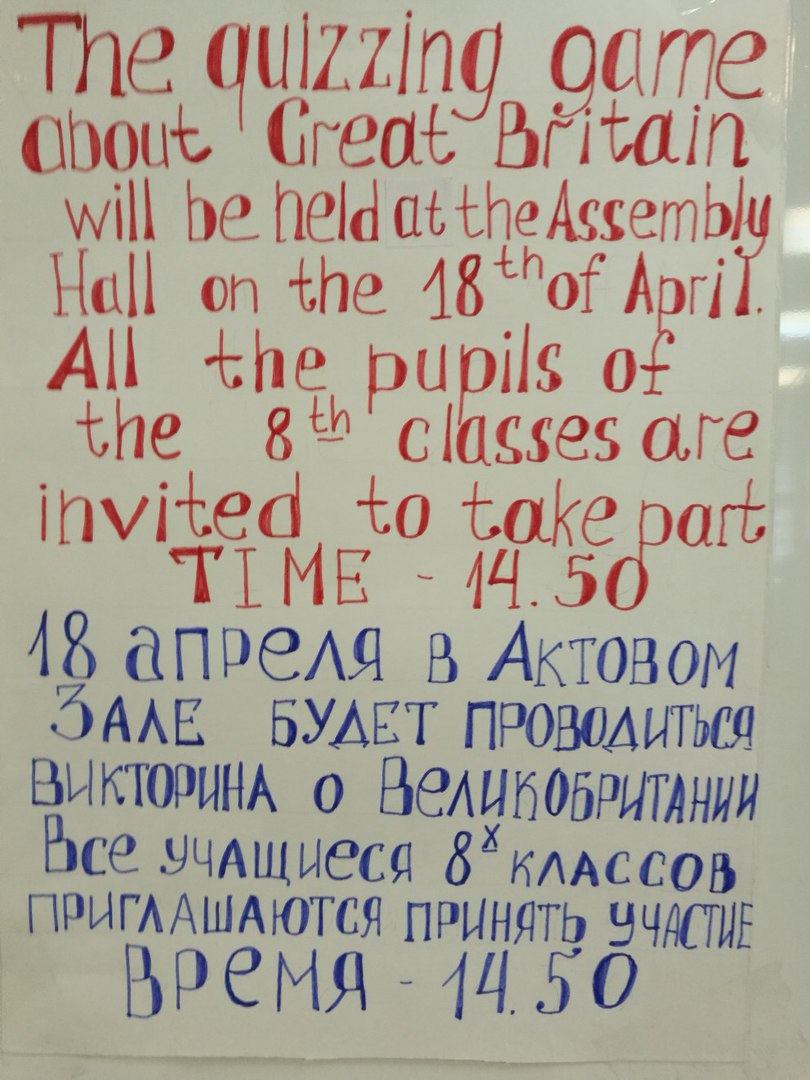 The quizzing game
about Great Britain
will be held at the Assembly
Hall on the 18th of April.
All the pupils of
the 8th classes are
invited to take part
TIME - 14.50
18 апреля в Актовом
Зале будет проводиться
викторина о Великобритании
Все учащиеся 8х классов
приглашаются принять участие
Время - 14.50